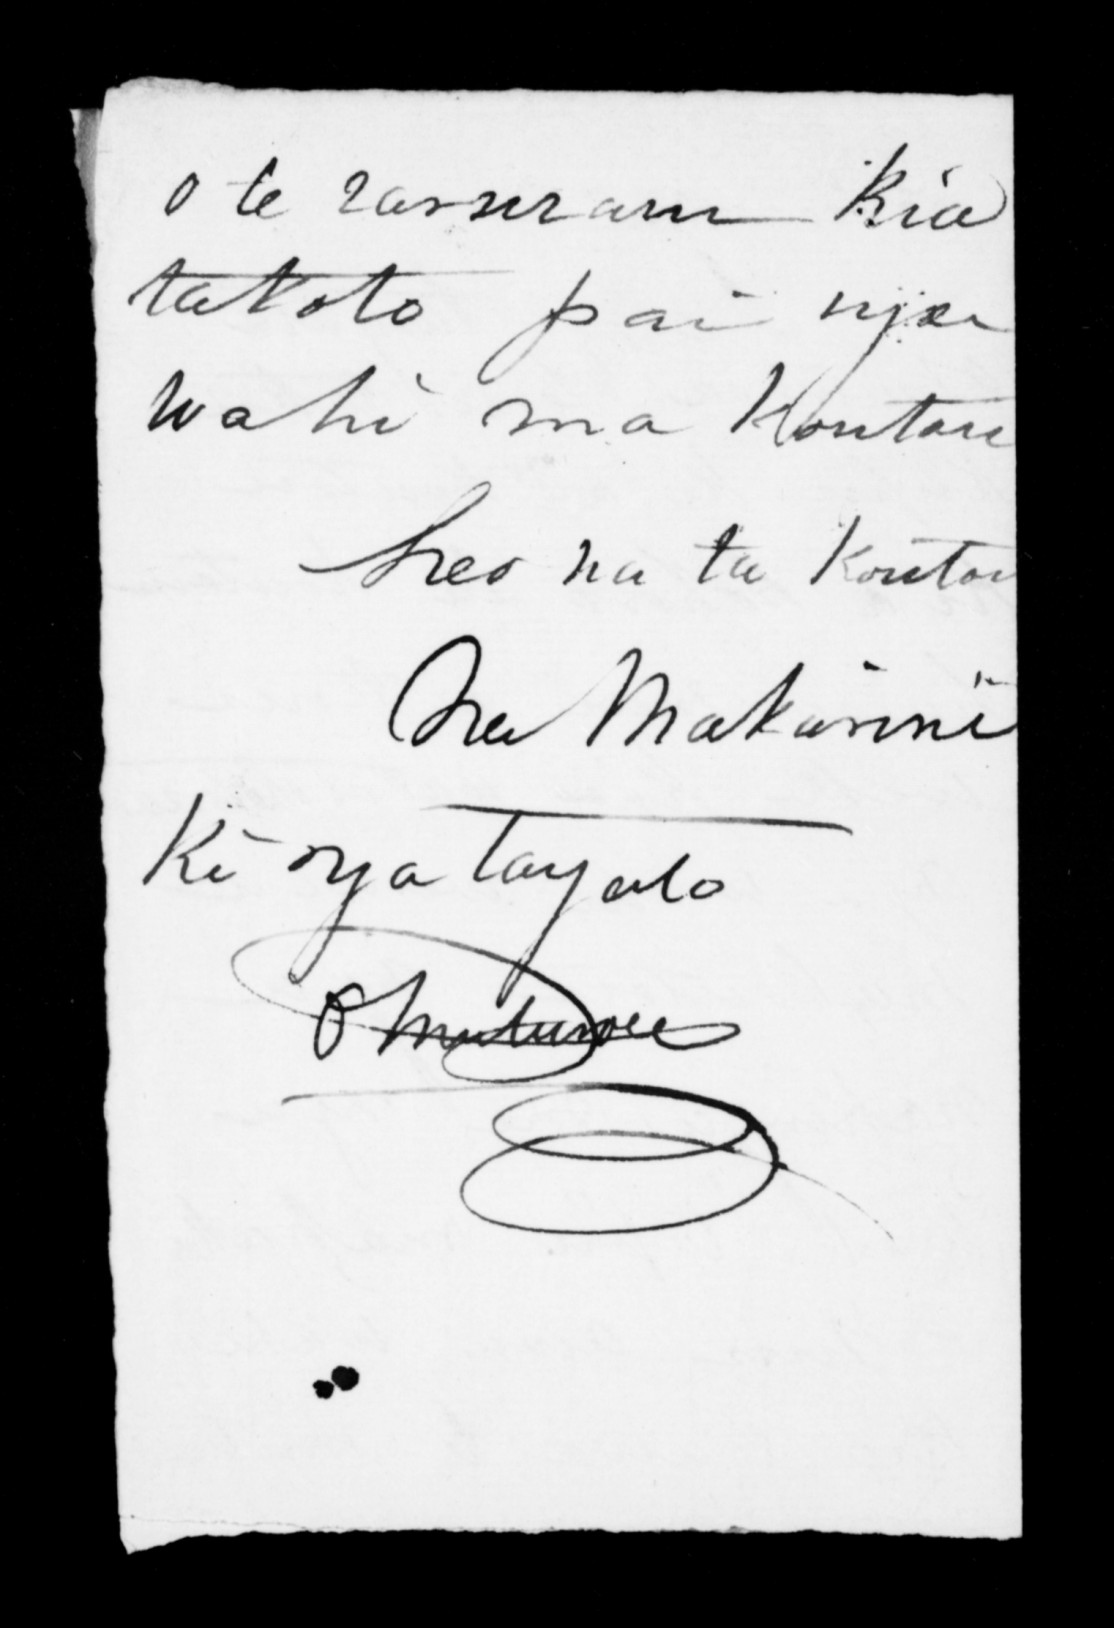 o te raruraru kia
takoto pai nga
wahi ma koutou
heo na ta koutou
Na Makarini
Ki nga Tangata
O